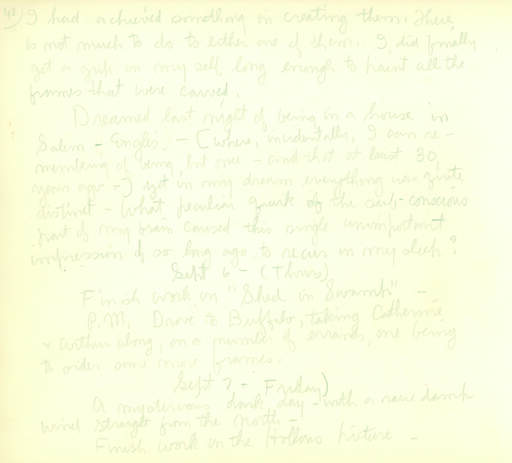 42) I had achieved something in creating them. There
is not much to do to either one of them. I did finally
get a grip on my self long enough to paint all the
frames that were carved.
Dreamed last night of being in a house in
Salem - Engle's - (where, incidentally, I can re-
membering of being but once - and that at least 30
years ago -) yet in my dream everything was quite
distinct - what peculiar quirk of the sub-conscious
part of my brain caused this single unimportant
impression of so long ago to recur in my sleep?
Sept 6 - (Thurs)
Finish work on "Shed in Swamp" -
P.M. Drove to Buffalo, taking Catherine
& Arthur along, on a number of errands, one being
to order some more frames.
Sept 7 - Friday)
A mysterious dark day - with a raw damp
wind straight from the north -
Finish work on the Hollows picture -